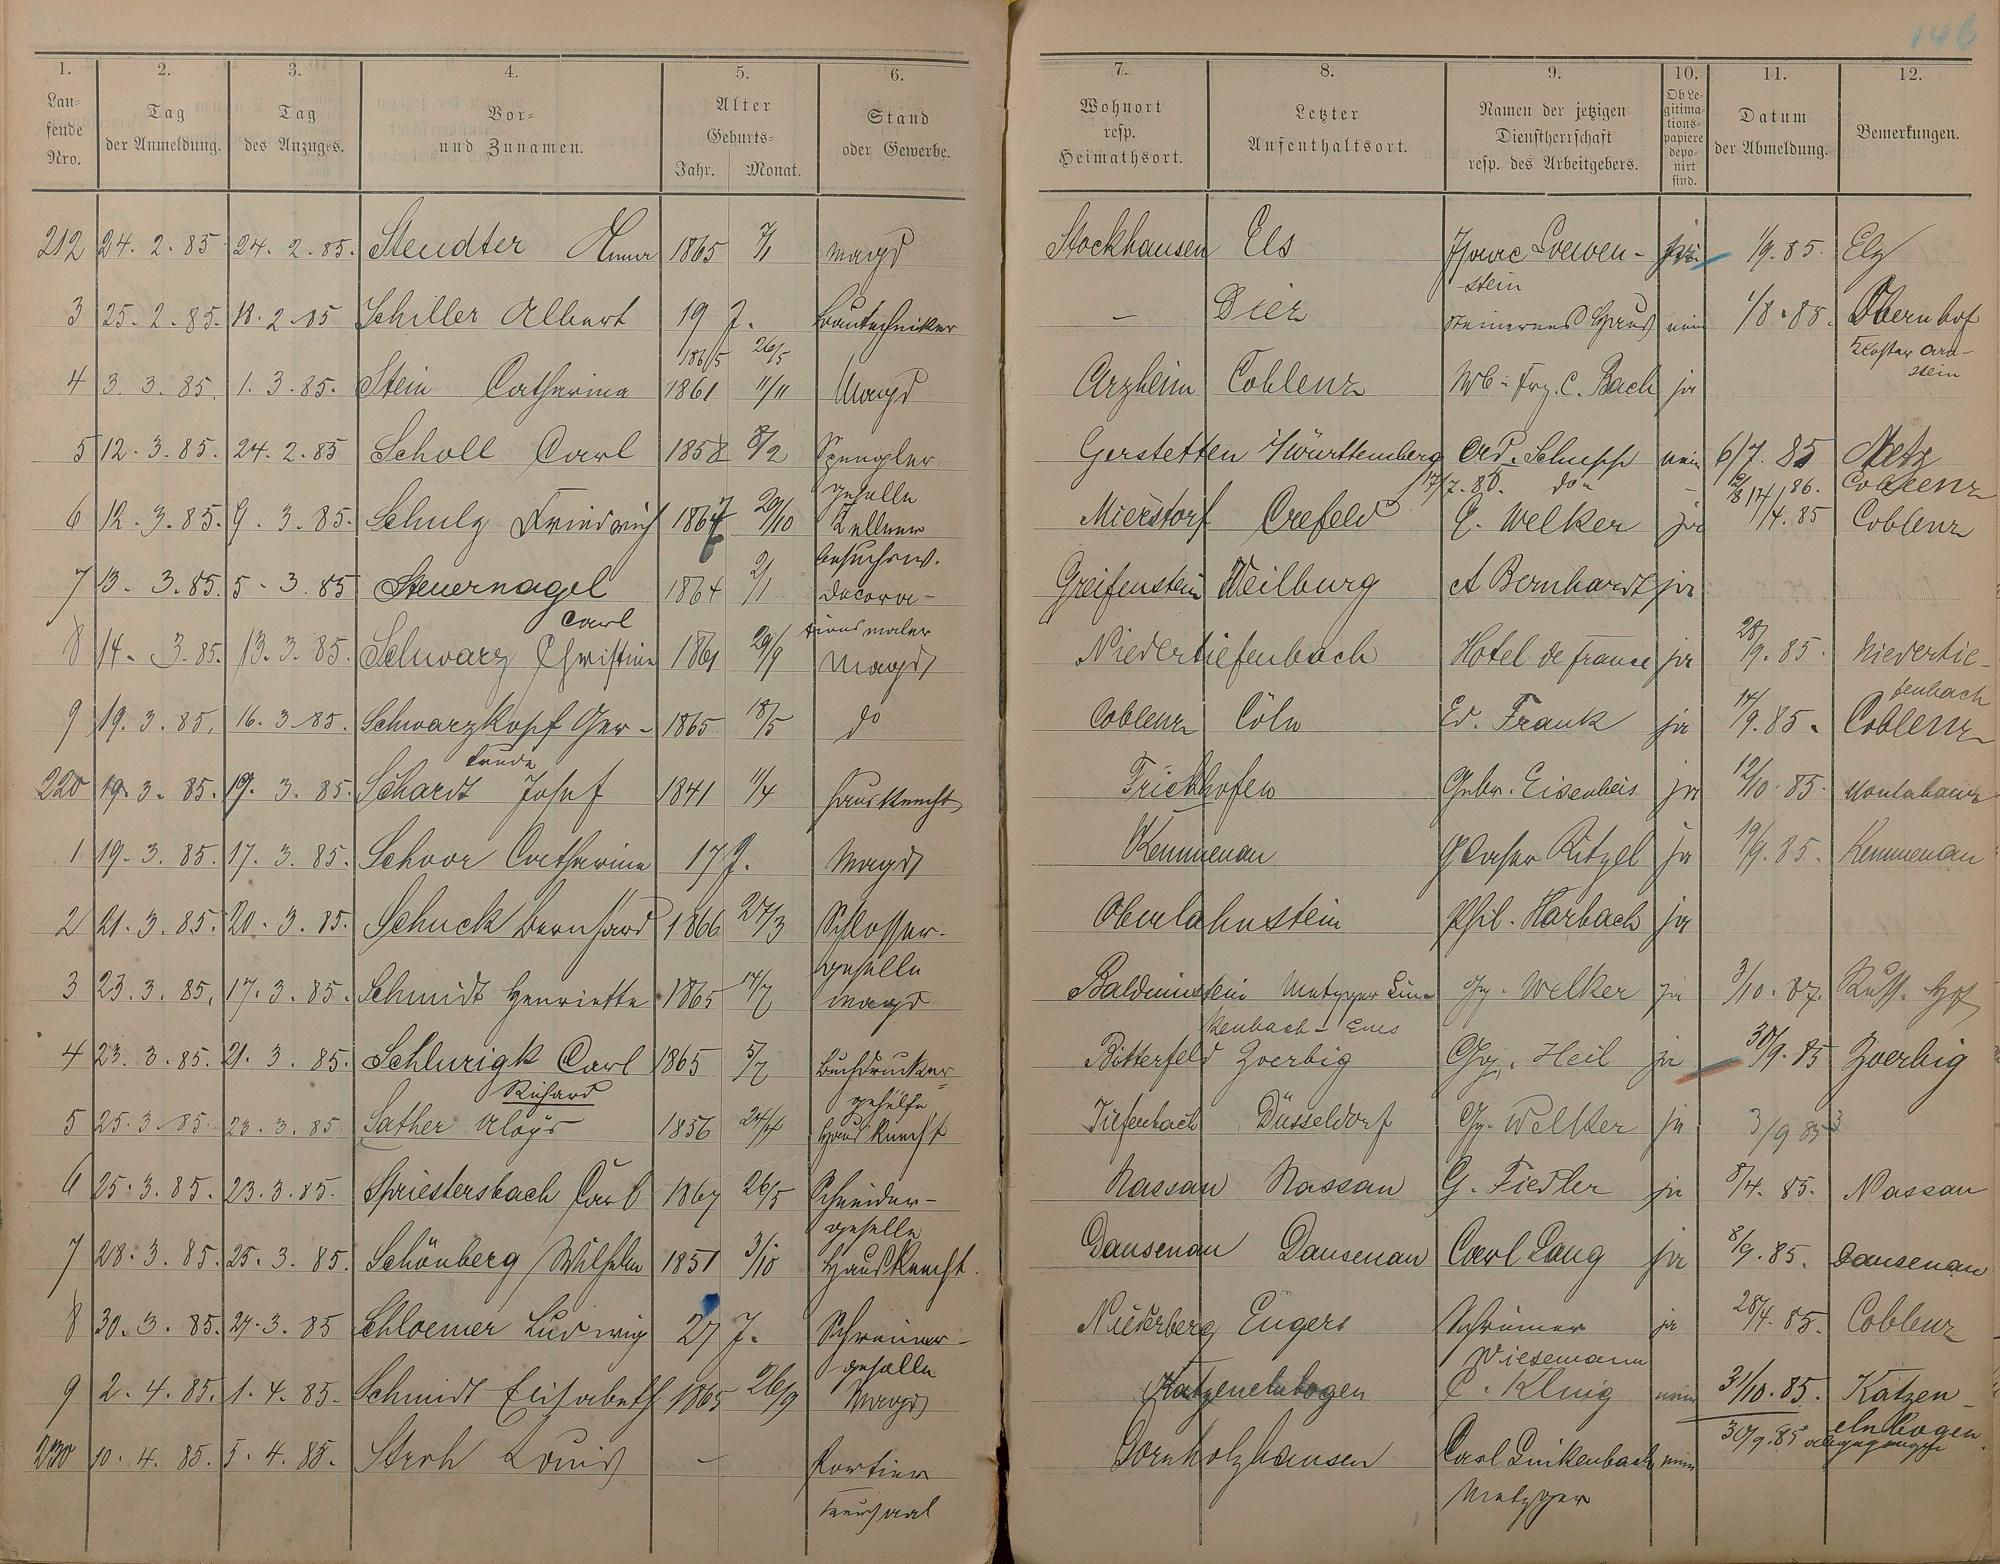 146
1. 2. 3. 4. 5. 6. 7. 8. 9. 10. 11. 12.
Laufende Nro.
Tag der Anmeldung.
Tag des Anzuges.
Vor- und Zunamen.
Alter
Geburts-
Jahr. Monat.
Stand oder Gewerbe.
Wohnort resp. Heimathsort.
Letzter Aufenthaltsort.
Namen der jetzigen Dienstherrschaft resp. des Arbeitgebers.
Ob Legitimationspapiere deponirt sind.
Datum der Abmeldung.
Bemerkungen.
212 24. 2. 85 24. 2. 85. Stendter Anna 1865 7/1 Magd Stockhausen Els Isaac Loewen- 1/9. 85. Elz
stein
3 25. 2. 85. 18. 2. 85 Schiller Albert 19 J. Bautechniker — Diez steinernes Haus nein 1/8. 85. Obernhof
1865 26/5 Kloster Arn-
stein
4 3. 3. 85. 1. 3. 85. Stein Catharina 1861 11/11 Magd Arzheim Coblenz Wb. Frz. C. Bach ja
5 12. 3. 85. 24. 2. 85 Scholl Carl 1858 8/2 Spengler- Gerstetten Württemberg Ad. Schupp nein 6/7. 85 Metz
geselle 17/7. 86. do 86. Coblenz
6 12. 3. 85. 9. 3. 85. Schulz Friedrich 1867 29/10 Kellner Mierstorf Crefeld G. Welker ja 17/4. 85 Coblenz
7 13. 3. 85. 5. 3. 85 Steuernagel 1864 2/1 Decora- Greifenstein Weilburg A Bernhardt ja
Carl tionsmaler
8 14. 3. 85. 13. 3. 85. Schwarz Christine 1861 29/9 Magd Niedertiefenbach Hotel de France ja 28/9. 85. Niedertie-
fenbach
9 19. 3. 85. 16. 3. 85. Schwarzkopf Ger- 1865 18/5 do Coblenz Cöln Ed. Frank ja 14/9. 85. Coblenz
trude
220 19. 3. 85. 19. 3. 85. Schardt Josef 1841 11/4 Hausknecht Frickhofen Gebr. Eisenbeis ja 12/10. 85. Montabaur
1 19. 3. 85. 17. 3. 85. Schoor Catharina 17 J. Magd Kemmenau Glaser Ritzel ja 19/9. 85. Kemmenau
2 21. 3. 85. 20. 3. 85. Schuck Bernhard 1866 27/3 Schlosser- Oberlahnstein Phil. Harbach ja
geselle
3 23. 3. 85. 17. 3. 85. Schmidt Henriette 1865 14/7 Magd Balduinstein Metzger Lin- Gg. Welker ja 3/10. 87. Russ. Hof
kenbach-Ems
4 23. 3. 85. 21. 3. 85. Schlurigk Carl 1865 5/7 Buchdrucker- Bitterfeld Zoerbig Gg. Heil ja 30/9. 85 Zoerbig
Richard gehülfe
5 25. 3. 85. 23. 3. 85 Sather Aloÿs 1856 24/4 Hausknecht Tiefenbach Düsseldorf Gg. Welker ja 3/9 85
6 25. 3. 85. 23. 3. 85. Spriestersbach Carl 1867 26/5 Schneider- Nassau Nassau G. Fiedler ja 8/4. 85. Nassau
geselle
7 28. 3. 85. 25. 3. 85. Schönberg Wilhelm 1851 3/10 Hausknecht Dausenau Dausenau Carl Lang ja 8/9. 85. Dausenau
8 30. 3. 85. 27. 3. 85 Schloemer Ludwig 27 J. Schreiner- Niederberg Engers Schreiner ja 28/4. 85. Coblenz
geselle Wiesemann
9 2. 4. 85. 1. 4. 85. Schmidt Elisabeth 1865 26/9 Magd Katzenelnbogen C. König nein 31/10. 85. Katzen-
elnbogen
30/9. 85 abgegangen
230 10. 4. 85. 5. 4. 85. Stroh Louis — Portier Dornholzhausen Carl Linkenbach nein
Kursaal Metzger